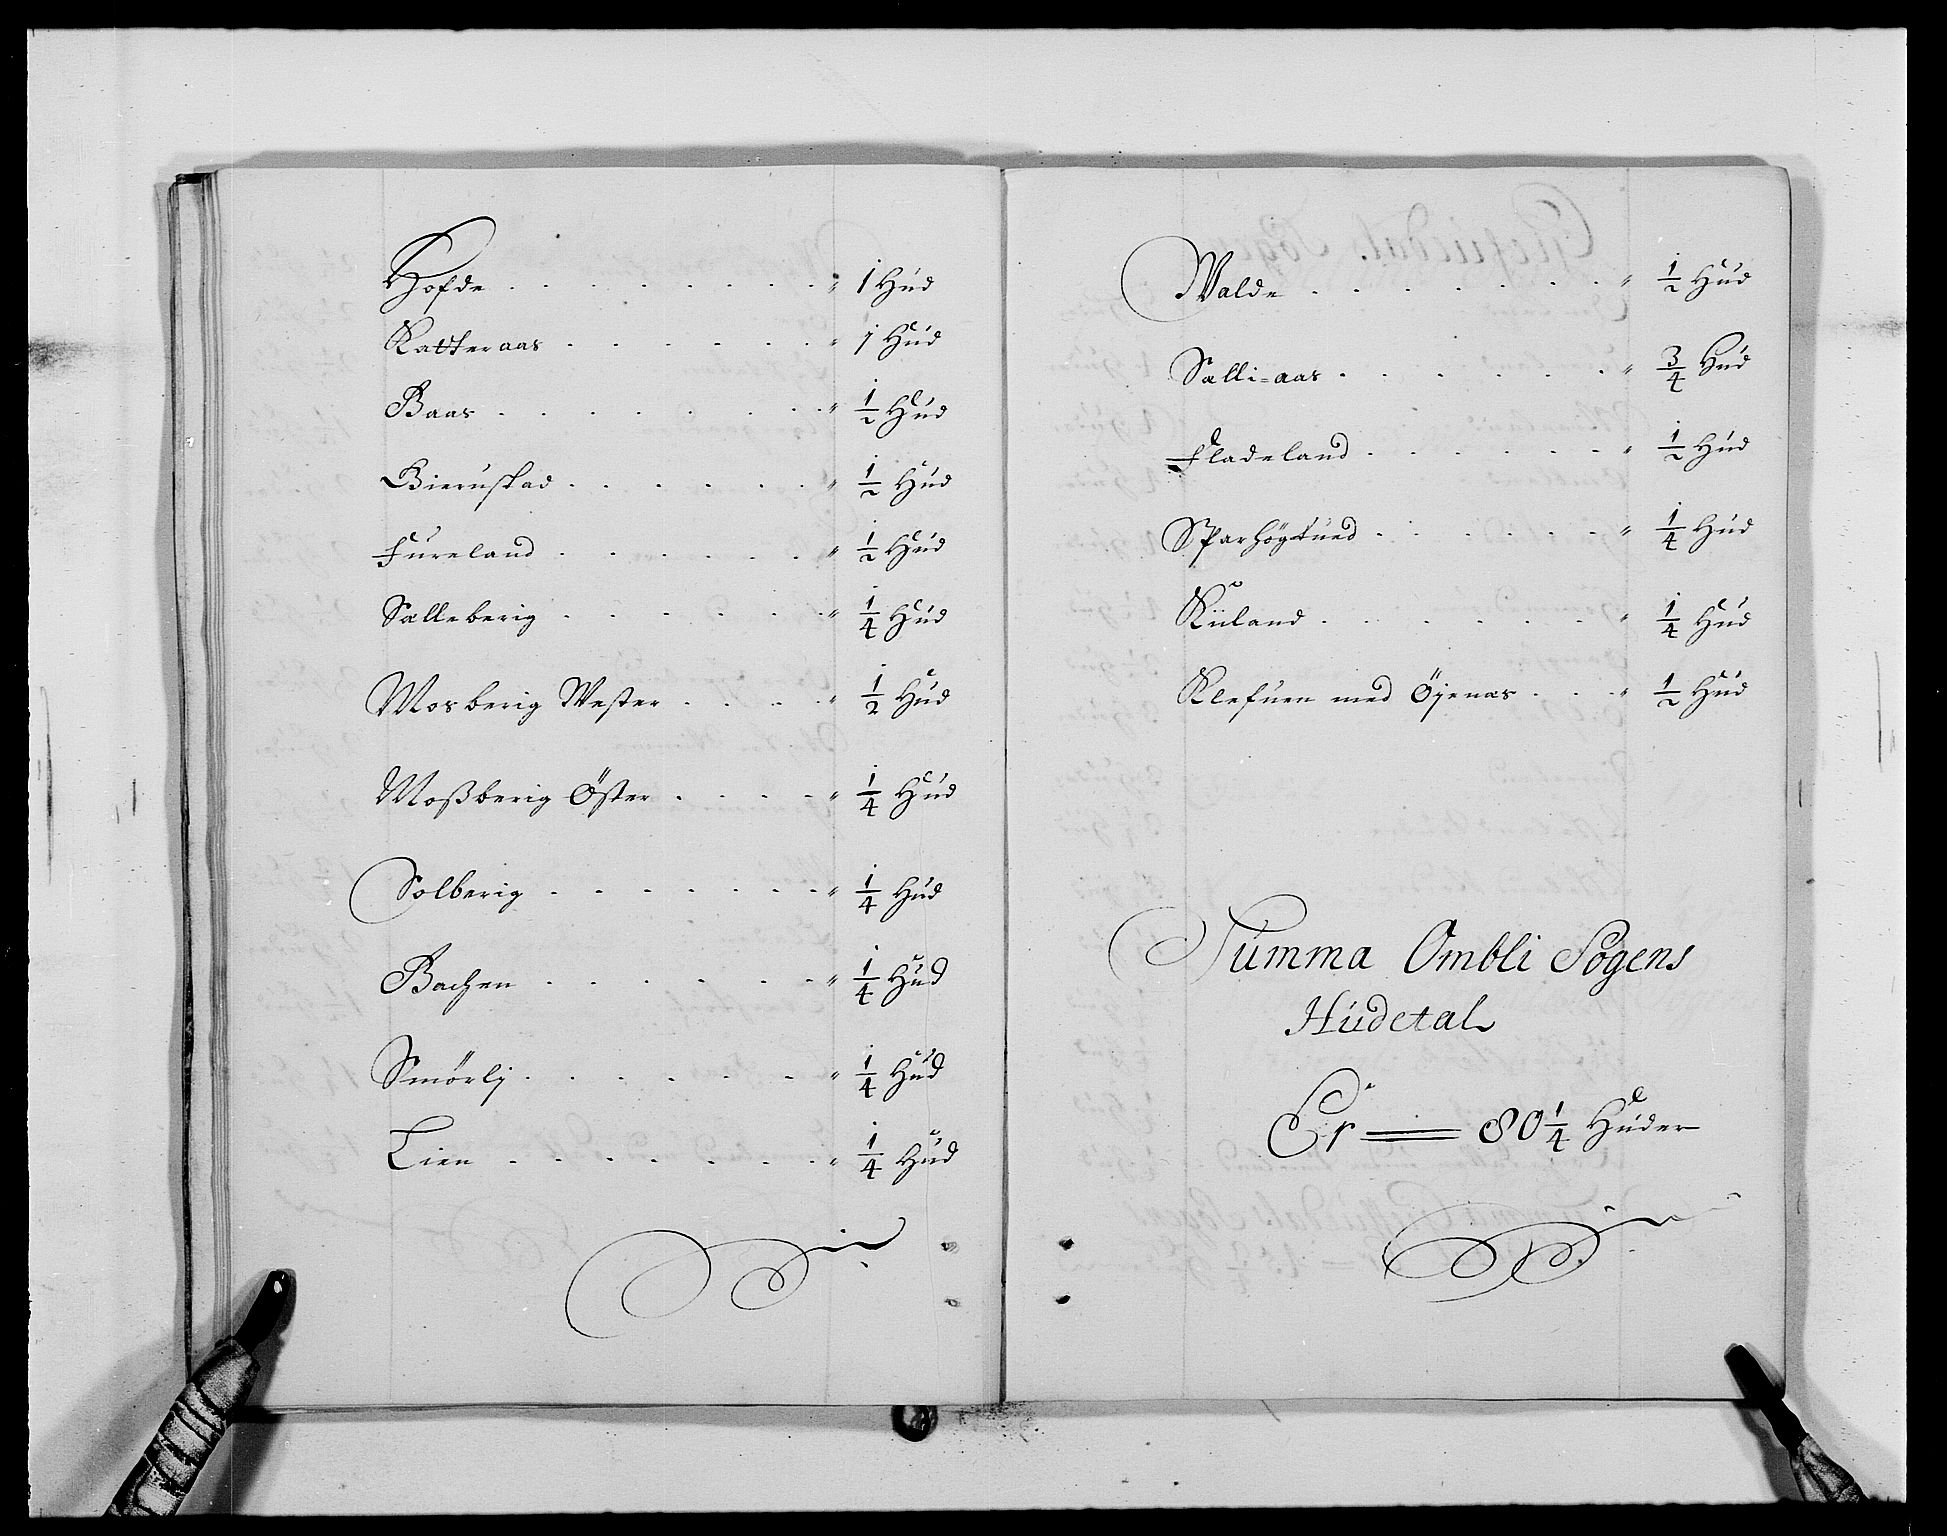 Hofde . . . . . . . . " 1 Hud
Katteraas . . . . . . " 1 Hud
Baas . . . . . . . . " 1/2 Hud
Bieruskad . . . . . . " 1/2 Hud
Fureland . . . . . . " 1/2 Hud
Salleberig . . . . . . " 1/4 Hud
Mosberig Wester . . . . " 1/2 Hud
Moßberig Öster . . . . " 1/4 Hud
Solberig . . . . . . . " 1/4 Hud
Bachen . . . . . . . " 1/4 Hud
Smörlj . . . . . . . " 1/4 Hud
Lien . . . . . . . . " 1/4 Hud
Walde . . . . . . . " 1/2 Hud
Salli=aas . . . . . . " 3/4 Hud
Fladeland . . . . . . " 1/2 Hud
. . . . . . " 1/4 Hud
Kiland . . . . . . . " 1/4 Hud
Klefuen med Öjenas . . . " 1/2 Hud
Summa Ombli Sogens
Hudetal
Er = 80 1/4 Huder